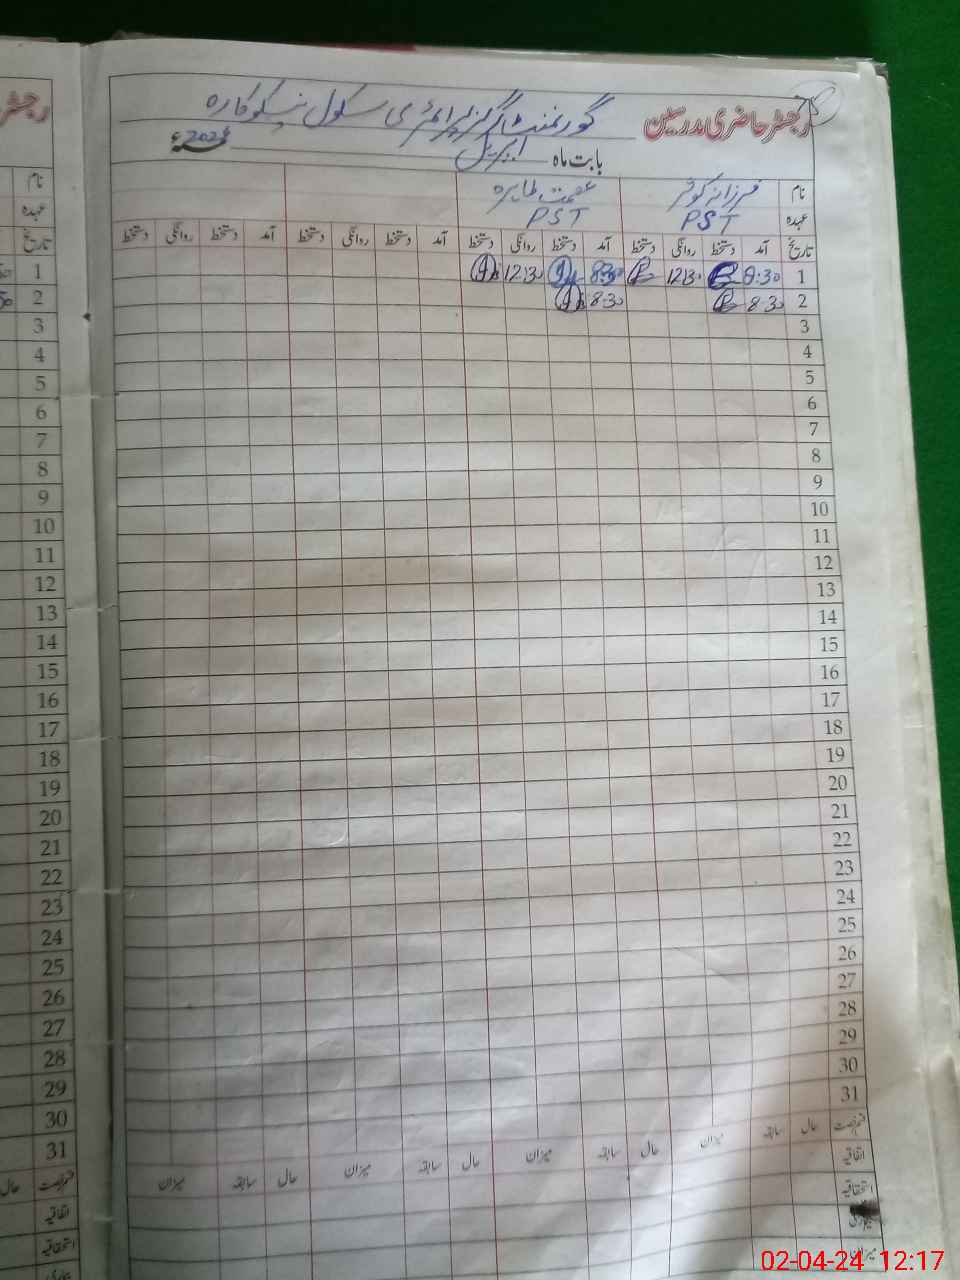 رجسٹر حاضری مدرسین گورنمنٹ گرلز پرائمری سکول
بابت ماہ اپریل 2024ء
نام فرزانہ کوثر عصمت طاہرہ
عہدہ PST PST
تاریخ آمد دستخط روانگی دستخط آمد دستخط روانگی دستخط آمد دستخط روانگی دستخط آمد دستخط روانگی دستخط
1 8:30 12:30 8:30 12:30
2 8:30 8:30
3
4
5
6
7
8
9
10
11
12
13
14
15
16
17
18
19
20
21
22
23
24
25
26
27
28
29
30
31
قسم رخصت حال سابقہ میزان حال سابقہ میزان حال سابقہ میزان حال سابقہ میزان
اتفاقیہ
استحقاقیہ
بیماری
میزان
رجسٹر
نام
عہدہ
تاریخ
1
2
3
4
5
6
7
8
9
10
11
12
13
14
15
16
17
18
19
20
21
22
23
24
25
26
27
28
29
30
31
قسم رخصت حال
اتفاقیہ
استحقاقیہ
بیماری
02-04-24 12:17